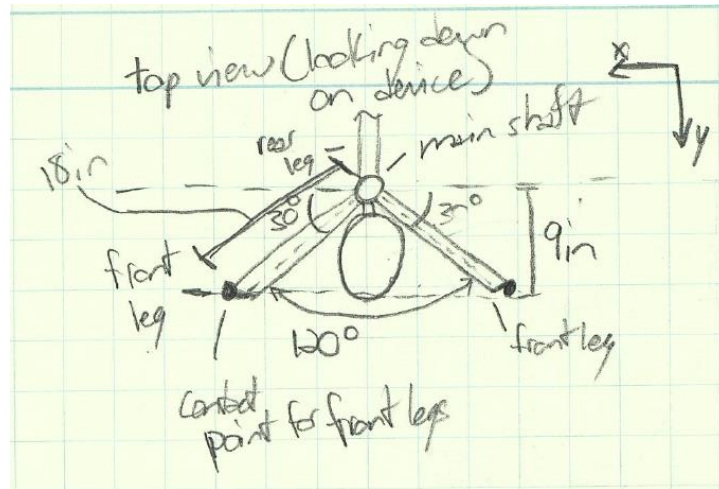 top view (looking down
on device)
x
y
rear
leg
main shaft
18in
30°
30°
9in
front
leg
120°
front leg
contact
point for front legs